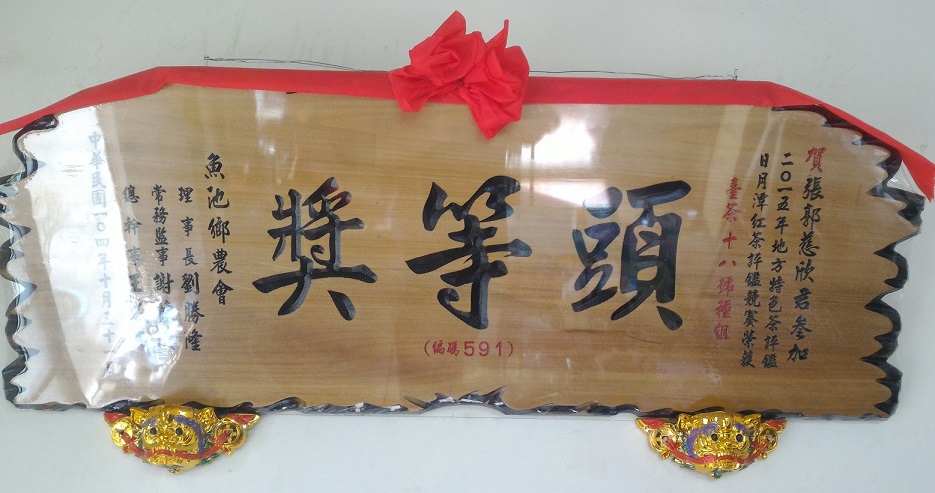 賀張郭慈欣君參加
二〇一五年地方特色茶評鑑
日月潭紅茶評鑑競賽榮獲
臺茶十八號種組
頭等獎
(編碼591)
魚池鄉農會
理事長劉勝隆
常務監事謝
總幹事王
中華民國一〇四年十月二十